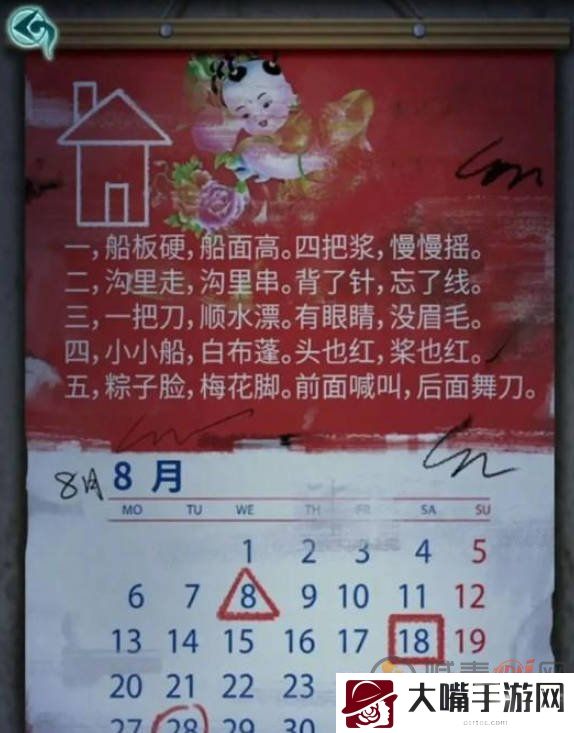 一，船板硬，船面高。四把浆，慢慢摇。
二，沟里走，沟里串。背了针，忘了线。
三，一把刀，顺水漂。有眼睛，没眉毛。
四，小小船，白布蓬。头也红，桨也红。
五，粽子脸，梅花脚。前面喊叫，后面舞刀。
8月 8 月
MO TU WE TH FR SA SU
1 2 3 4 5
6 7 8 9 10 11 12
13 14 15 16 17 18 19
20 21 22 23
27 28 29 30
大嘴手游网